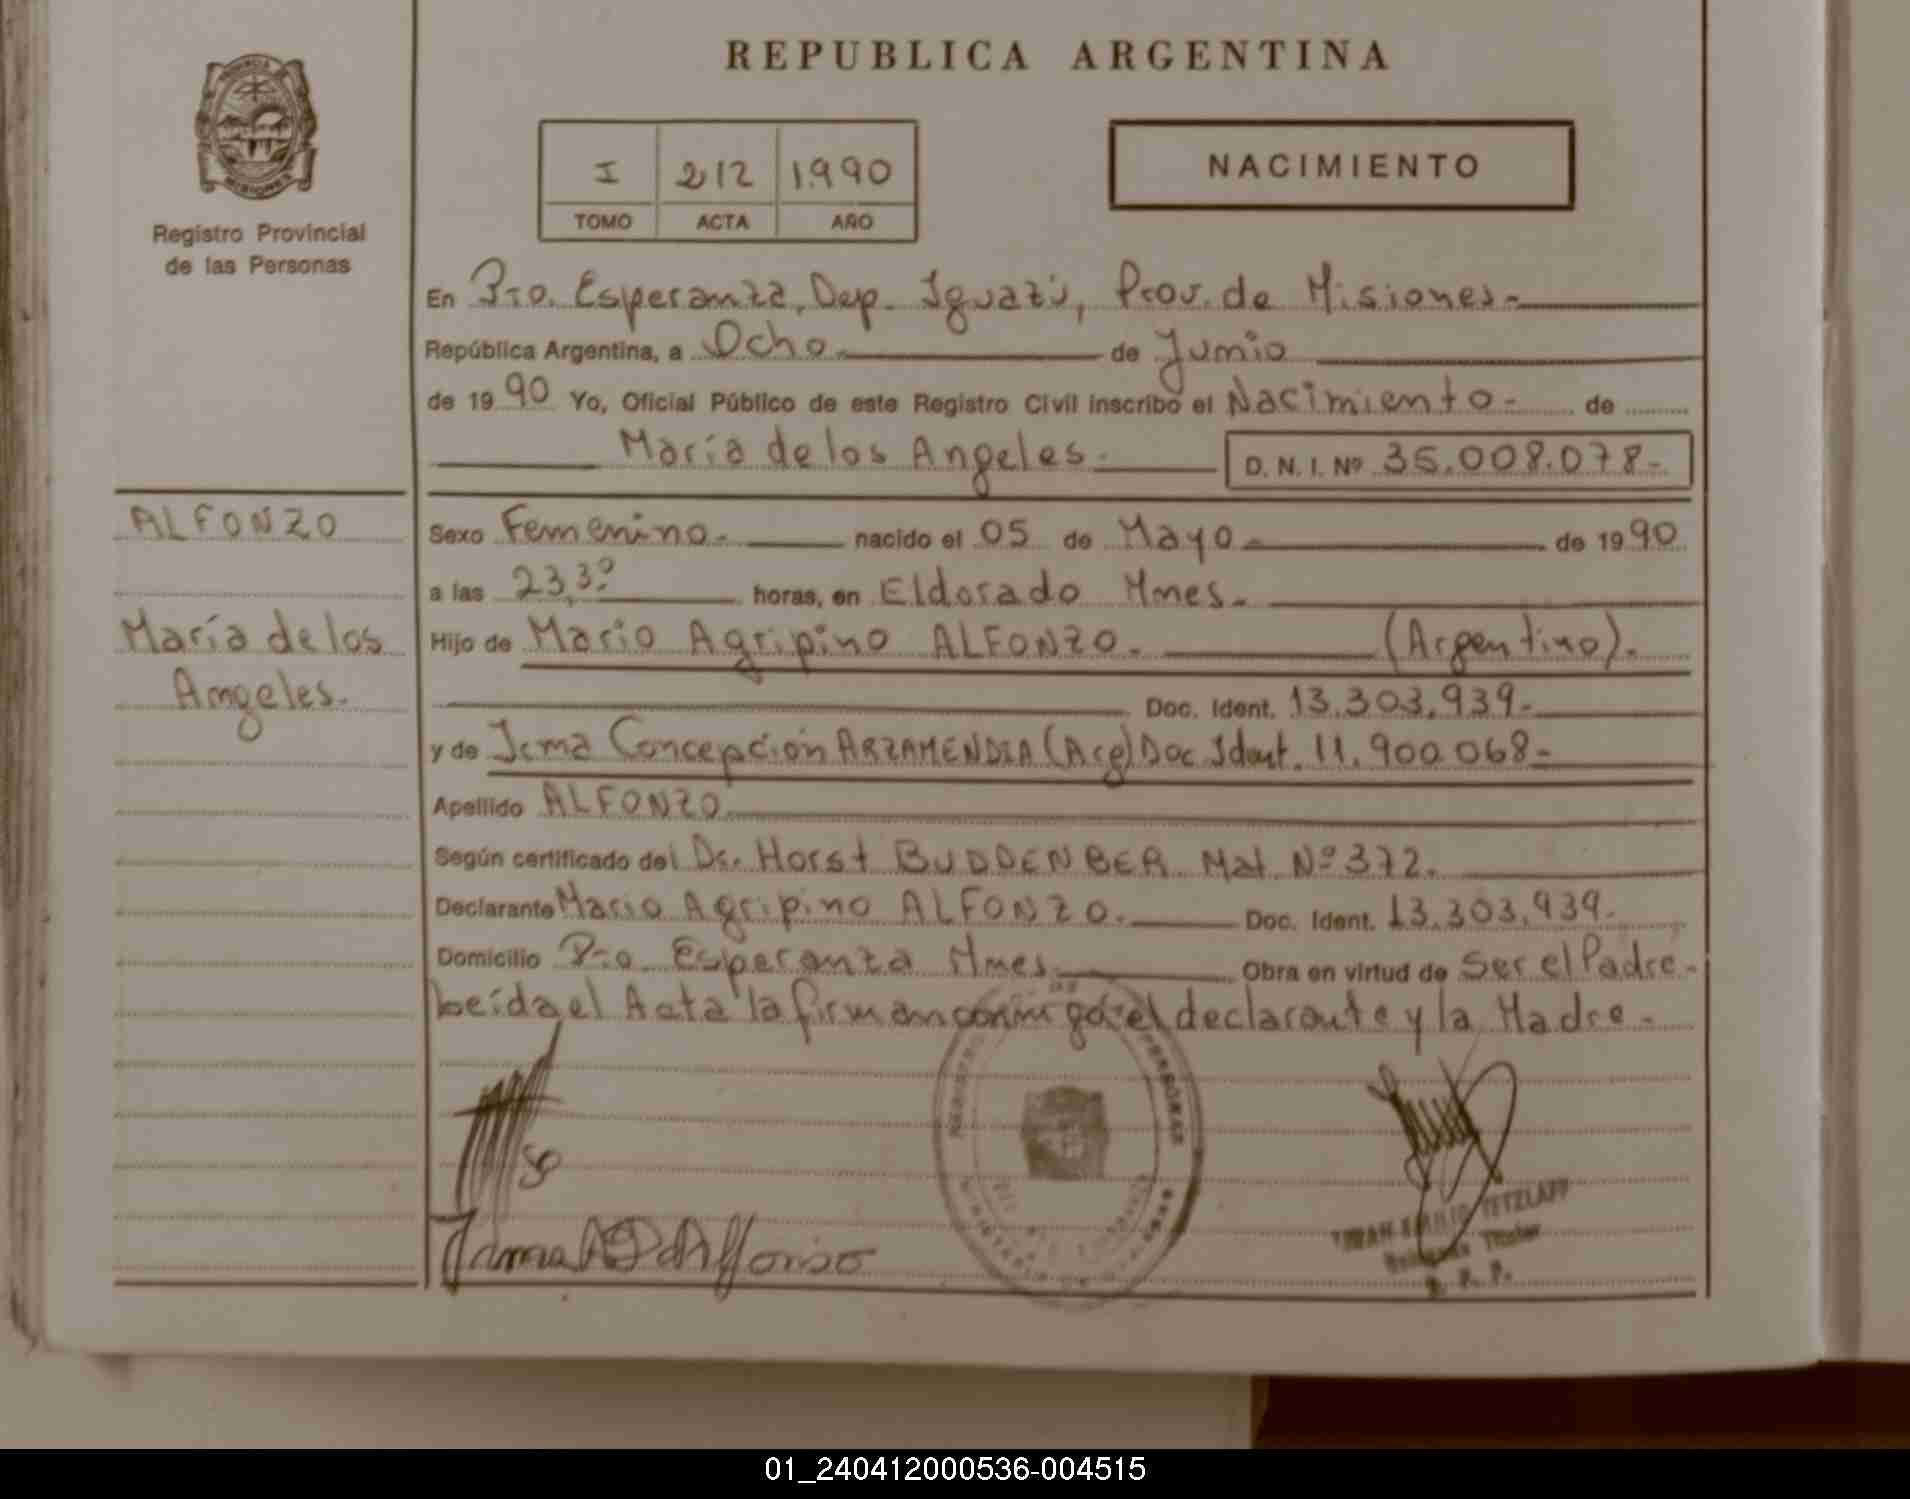 REPUBLICA ARGENTINA
PROVINCIA
MISIONES
Registro Provincial
de las Personas
I 212 1.990
TOMO ACTA AÑO
NACIMIENTO
En Pto. Esperanza, Dep. Iguazú, Prov. de Misiones.-
República Argentina, a Ocho.- de Junio
de 1990 Yo, Oficial Público de este Registro Civil inscribo el Nacimiento.- de
María de los Angeles.-
D. N. I. Nº 35.008.078-
ALFONZO
María de los
Angeles.-
Sexo Femenino.- nacido el 05 de Mayo.- de 1990
a las 23,3º horas, en Eldorado Mnes.-
Hijo de Mario Agripino ALFONZO.- (Argentino).-
Doc. Ident. 13.303.939.-
y de Irma Concepción ARZAMENDIA (Arg) Doc Ident. 11.900.068-
Apellido ALFONZO.
Según certificado del Dr. Horst BUDDENBER Mat. Nº 372.
Declarante Mario Agripino ALFONZO.- Doc. Ident. 13.303.939.-
Domicilio Pto. Esperanza Mnes.- Obra en virtud de Ser el Padre.-
Leída el Acta la firman conmigo el declarante y la Madre.-
Irma A de Alfonso
EMILIO TETZLAFF
Titular
R. P. P.
01_240412000536-004515